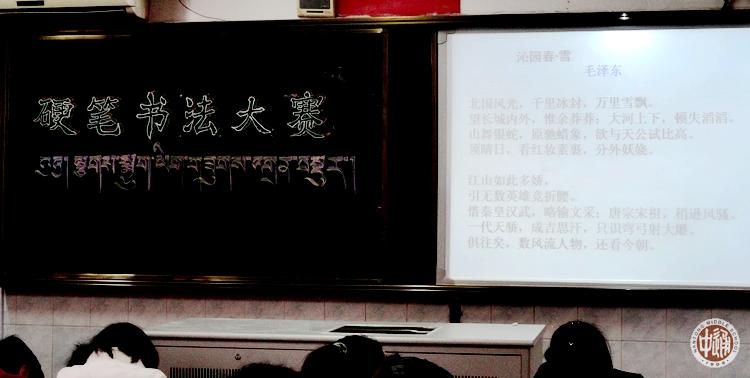 硬笔书法大赛
沁园春·雪
毛泽东
北国风光，千里冰封，万里雪飘。
望长城内外，惟余莽莽；大河上下，顿失滔滔。
山舞银蛇，原驰蜡象，欲与天公试比高。
须晴日，看红妆素裹，分外妖娆。
江山如此多娇，
引无数英雄竞折腰。
惜秦皇汉武，略输文采；唐宗宋祖，稍逊风骚。
一代天骄，成吉思汗，只识弯弓射大雕。
俱往矣，数风流人物，还看今朝。